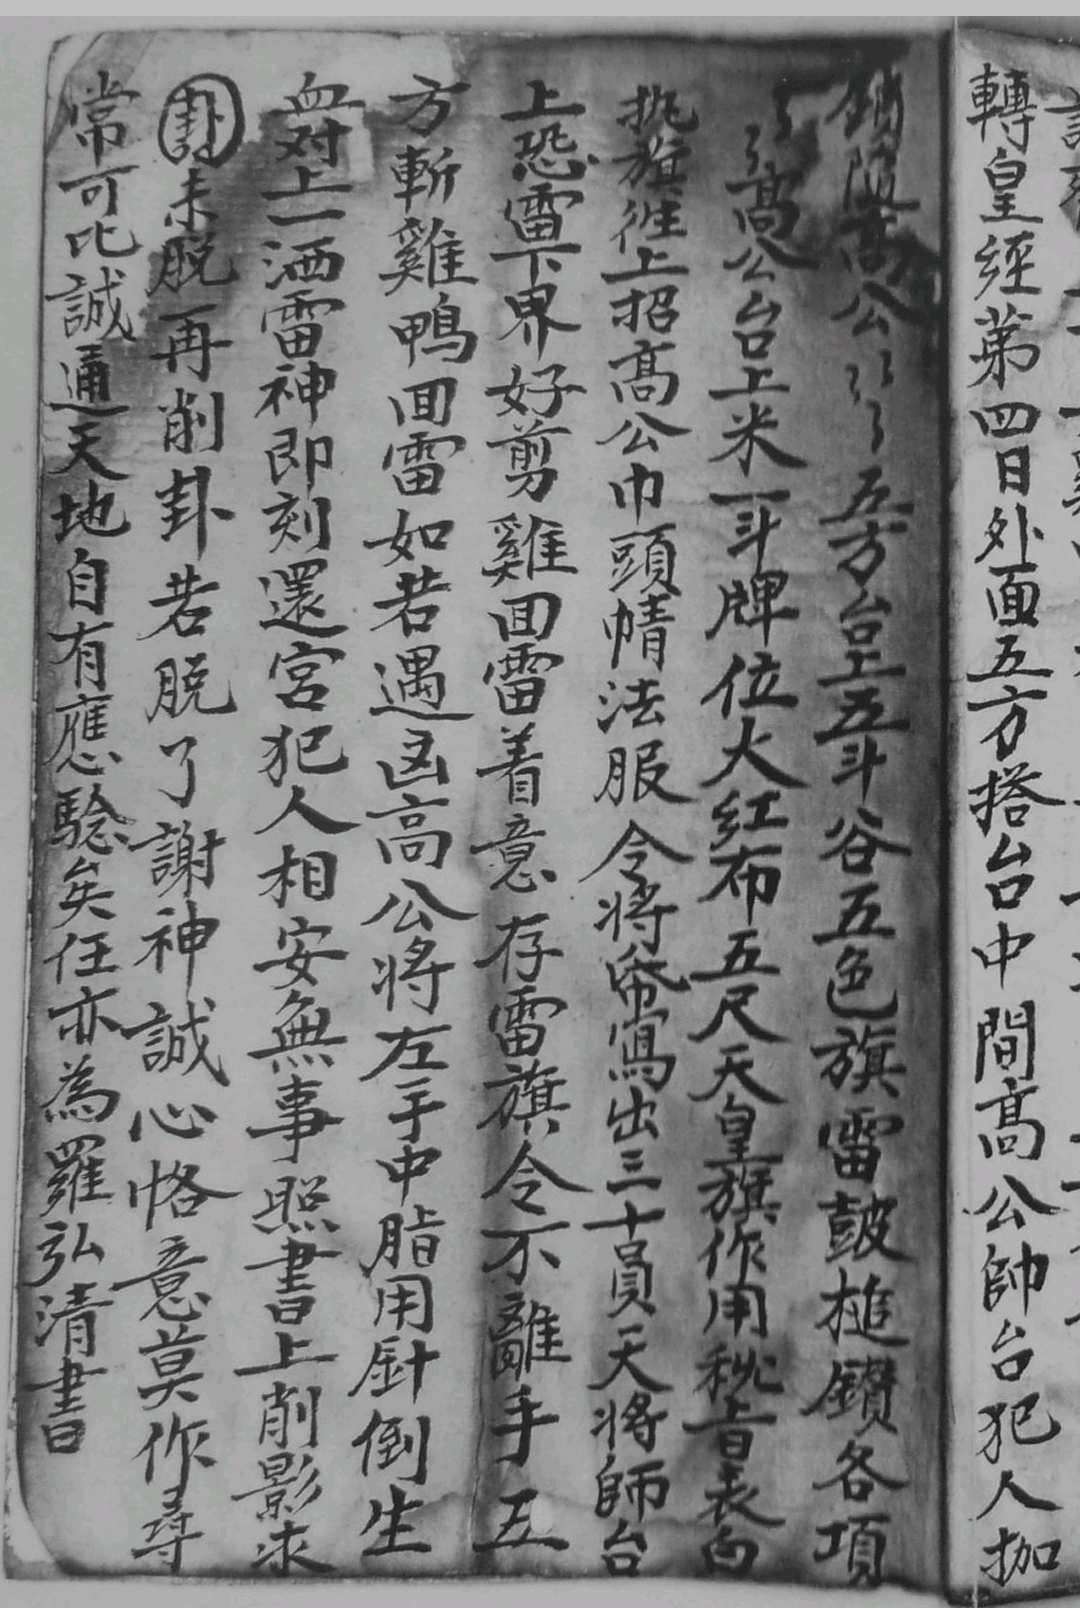 轉皇經第四日外面五方搭台中間高公帥台犯人枷
鎖 高公 五方台上五斗谷五色旗雷鼓槌鑽各項
高公台上米一斗牌位大紅布五尺天皇旗作用秘旨表白
执旗徃上招高公巾頭幘法服令将 寫出三十員天将師台
上恐雷下界好剪雞回雷着意存雷旗令不離手五
方斬雞鴨回雷如若遇凶高公将左手中脂用針倒生
血对上一洒雷神即刻還宮犯人相安無事照書上削影求
卦未脱再削卦若脱了謝神誠心恪意莫作尋
常可比誠通天地自有應驗矣任亦為羅弘清書